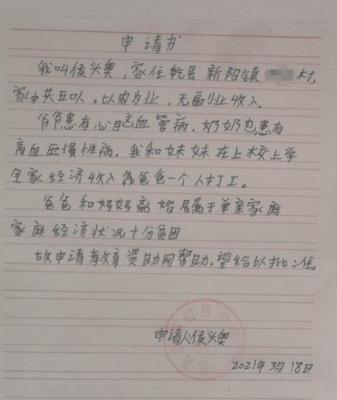 申请书
我叫侯头奥，家住乾县新阳镇 村
家中共五口人，以农为业，无副业收入。
爷爷患有心脑血管病，奶奶也患有
高血压慢性病。我和妹妹在上校上学
全家经济收入靠爸爸一个人打工。
爸爸和妈妈离婚居属于单亲家庭
家庭经济状况十分贫困
故申请教育资助网帮助，望给以批准。
申请人侯头奥
2021年3月18日